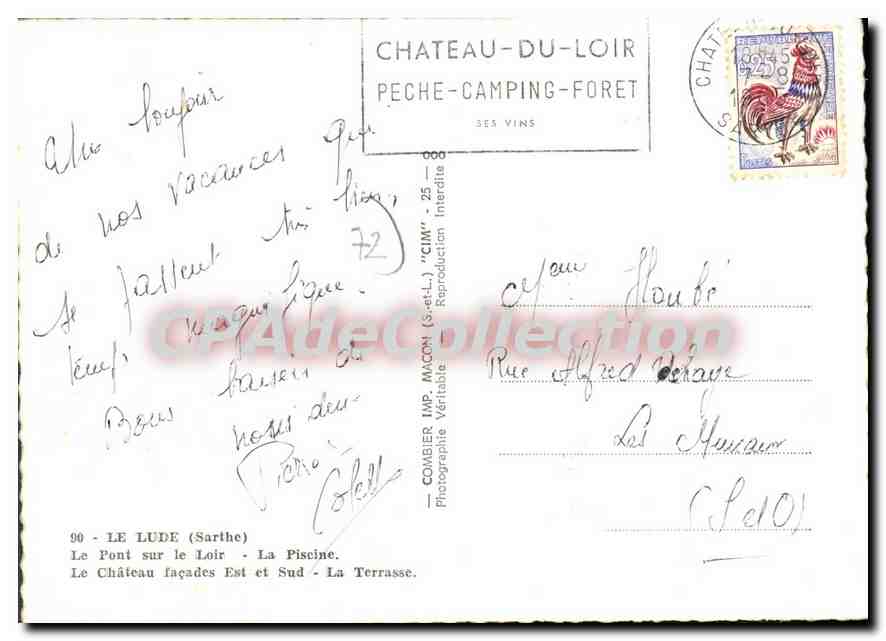 CHATEAU-DU-LOIR
PECHE-CAMPING-FORET
SES VINS
18H45
7-8
0,25
toujours
de nos vacances que
se passent très bien,
temps magnifique.
Bons baisers de
nous deux
Pierre
Colette
72
— COMBIER IMP. MACON (S.-et-L.) "CIM" - 25 — 000
Photographie Véritable — Reproduction Interdite
Mme
Rue Alfred
Les
(S et O)
90 - LE LUDE (Sarthe)
Le Pont sur le Loir - La Piscine.
Le Château façades Est et Sud - La Terrasse.
CPAdeCollection